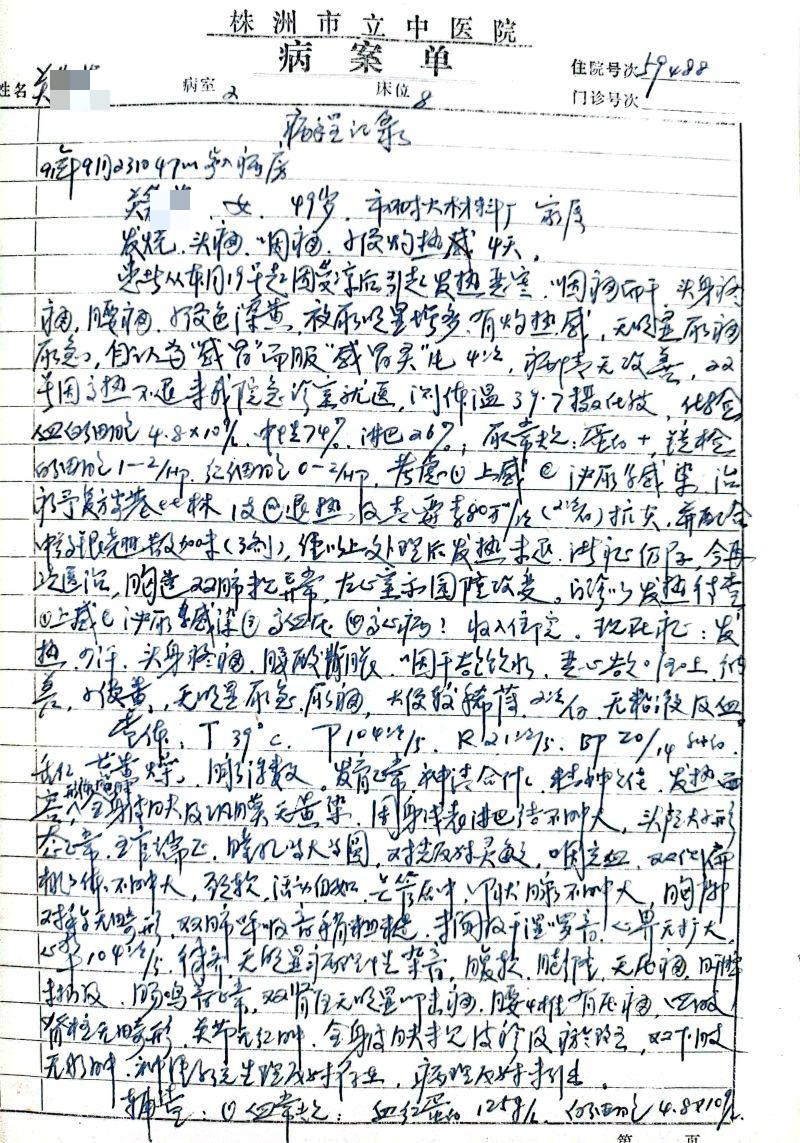 株洲市立中医院
病案单
住院号次 59488
姓名 吴 病室 2 床位 8 门诊号次
病程记录
年9月23日 入病房
吴 女 49岁 市耐火材料厂家属
发烧、头痛、咽痛、小便灼热感4天。
患者从本月19号起因受凉后引起发热恶寒、咽痛而干、头身疼
痛、腰痛、小便色深黄、夜尿明显增多、有灼热感、无明显尿痛
尿急，自认为“感冒”而服“感冒灵”片4次，病情无改善，22
号因高热不退来我院急诊室就医，测体温39.7摄氏度，化验
血白细胞4.8×10⁹/L 中性74% 淋巴26%；尿常规：蛋白+，镜检
白细胞1-2/HP、红细胞0-2/HP，考虑①上感②泌尿系感染，治
疗予复方 退热及青霉素80万/次（2次/日）抗炎，并配合
中药银翘散加味（3剂），经以上处理后发热未退，诸证仍存，今再
次医治，胸透双肺未见异常，左心室 改变。门诊以发热待查
①上感②泌尿系感染③高血压④高心病？收入住院。现症：发
热、少汗、头身疼痛、腰酸 咽干 饮水、恶心 纳
差，小便黄，无明显尿急、尿痛，大便较稀薄，2次/日，无粘液及血
查体：T 39°C P 104次/分 R 21次/分 BP 20/14
舌红 苔黄燥， 脉浮数，发育正常，神清合作，精神欠佳，发热面
容，全身皮肤及巩膜无黄染，周身浅表淋巴结不肿大，头颅大小形
态正常，五官端正，瞳孔等大等圆，对光反射灵敏，咽充血，双侧扁
桃体不肿大，颈软，活动自如，气管居中，甲状腺不肿大，胸廓
对称无畸形，双肺呼吸音稍粗糙，未闻及干湿啰音，心界无扩大，
心率104次/分，律齐，无明显病理性杂音，腹软，无压痛，肝脾
未扪及，肠鸣音正常，双肾区无明显叩击痛，腰椎有压痛，四肢
脊柱无畸形，关节无红肿，全身皮肤未见皮疹及瘀斑，双下肢
无水肿，神经系统生理反射存在，病理反射未引出。
辅查：①血常规：血红蛋白125g/L 白细胞4.8×10⁹/L
第 页